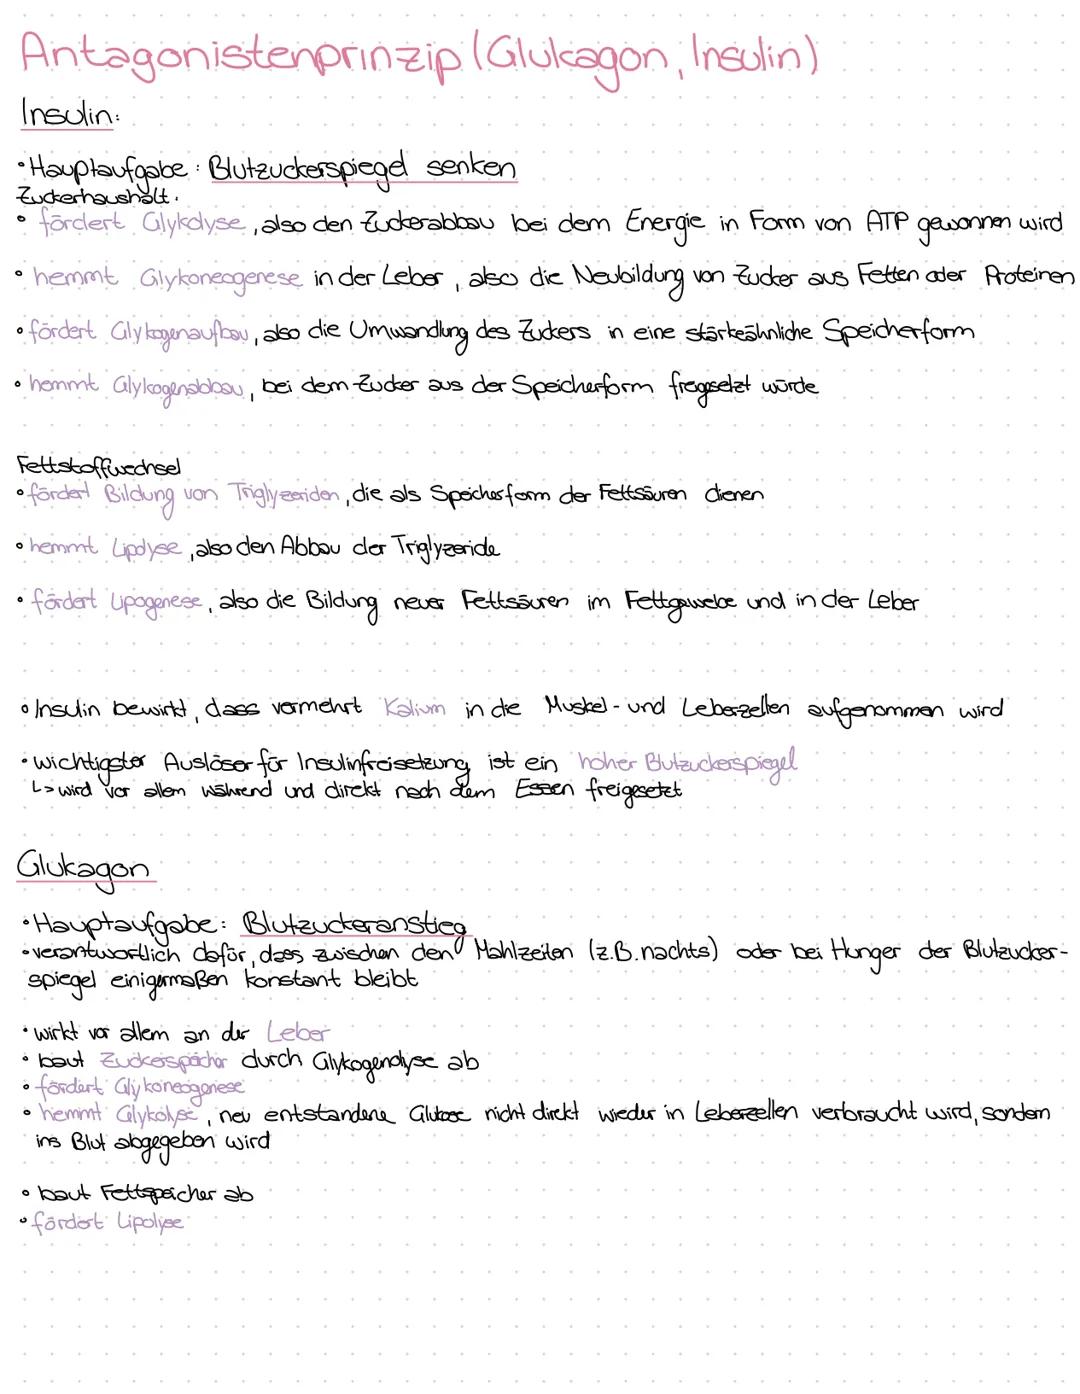 Antagonistenprinzip (Glukagon, Insulin)
Insulin:
• Hauptaufgabe: Blutzuckerspiegel senken
Zuckerhaushalt:
• fördert Glykolyse, also den Zuckerabbau bei dem Energie in Form von ATP gewonnen wird
• hemmt Glykoneogenese in der Leber, also die Neubildung von Zucker aus Fetten oder Proteinen
• fördert Glykogenaufbau, also die Umwandlung des Zuckers in eine stärkeähnliche Speicherform
• hemmt Glykogenabbau, bei dem Zucker aus der Speicherform freigesetzt würde
Fettstoffwechsel
• fördert Bildung von Triglyzeriden, die als Speicherform der Fettsäuren dienen
• hemmt Lipolyse, also den Abbau der Triglyzeride
• fördert Lipogenese, also die Bildung neuer Fettsäuren im Fettgewebe und in der Leber
• Insulin bewirkt, dass vermehrt Kalium in die Muskel- und Leberzellen aufgenommen wird
• wichtigster Auslöser für Insulinfreisetzung ist ein hoher Blutzuckerspiegel
↳ wird vor allem während und direkt nach dem Essen freigesetzt
Glukagon
• Hauptaufgabe: Blutzuckeranstieg
• verantwortlich dafür, dass zwischen den Mahlzeiten (z.B. nachts) oder bei Hunger der Blutzucker-
spiegel einigermaßen konstant bleibt
• wirkt vor allem an der Leber
• baut Zuckerspeicher durch Glykogenolyse ab
• fördert Glykoneogenese
• hemmt Glykolyse, neu entstandene Glukose nicht direkt wieder in Leberzellen verbraucht wird, sondern
ins Blut abgegeben wird
• baut Fettspeicher ab
• fördert Lipolyse